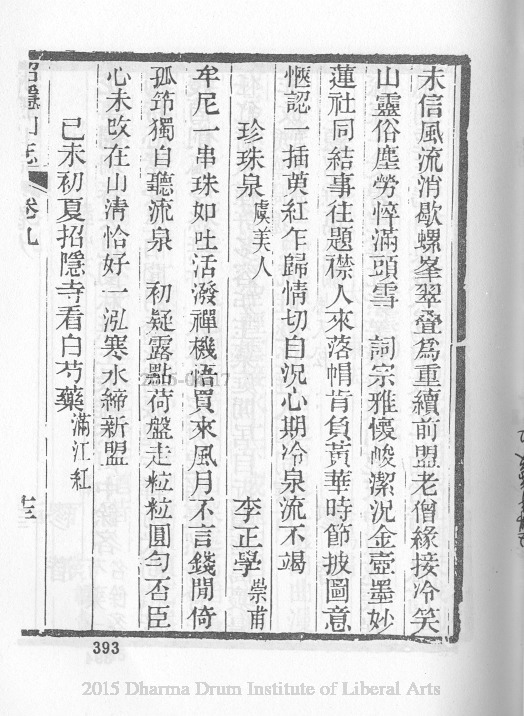 未信風流消歇螺峯翠疊爲重續前盟老僧緣接冷笑
山靈俗塵勞悴滿頭雪　詞宗雅懷峻潔況金壺墨妙
蓮社同結事往題襟人來落帽肯負黃華時節披圖意
愜認一插萸紅乍歸情切自況心期冷泉流不竭
珍珠泉 虞美人　李正學 崇甫
牟尼一串珠如吐活潑禪機悟買來風月不言錢閒倚
孤筇獨自聽流泉　初疑露點荷盤走粒粒圓勻否臣
心未改在山清恰好一泓寒水締新盟
己未初夏招隱寺看白芍藥 滿江紅
招隱山志　卷九　十三
393
2015 Dharma Drum Institute of Liberal Arts